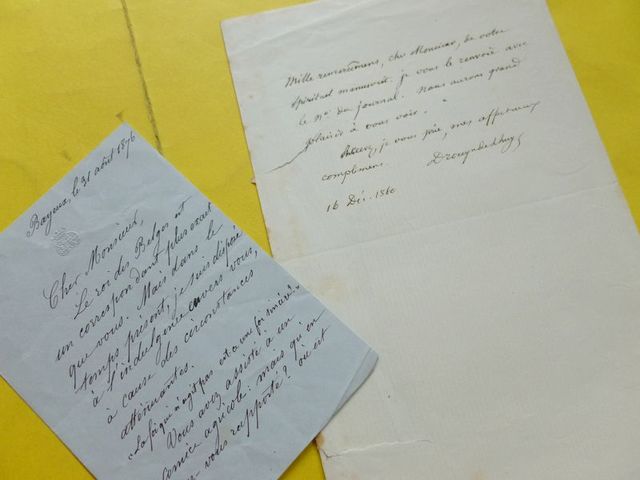 Mille remerciements, cher Monsieur, de votre
spirituel manuscrit. je vous le renvoie avec
le No du journal. Nous aurons grand
plaisir à vous voir.
Recevez, je vous prie, mes affectueux
compliments.
Drouyn de Lhuys
16 Déc. 1860
Bayeux, le 31 août 1876
Cher Monsieur,
Le roi des Belges est
un correspondant plus exact
que vous. Mais dans le
temps présent, je suis disposé
à l'indulgence envers vous,
à cause des circonstances
atténuantes.
"La foi qui n'agit pas est-ce une foi sincère"
Vous avez assisté à un
comice agricole: mais qu'en
vous rapporté? où est